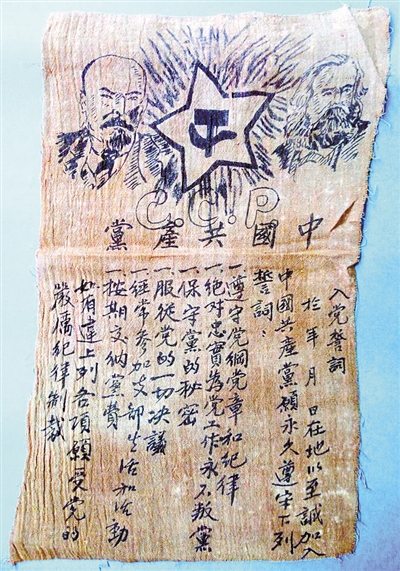 C.C.P
中國共產黨
入党誓詞
於 年 月 日在地以至誠加入
中國共產黨願永久遵守下列
誓詞：
一、遵守党綱党章和紀律
一、絕对忠實為党工作永不叛黨
一、保守黨的秘密
一、服從党的一切决議
一、經常參加支部生活和活動
一、按期交納黨費
如有違上列各項願受党的
嚴厲紀律制裁